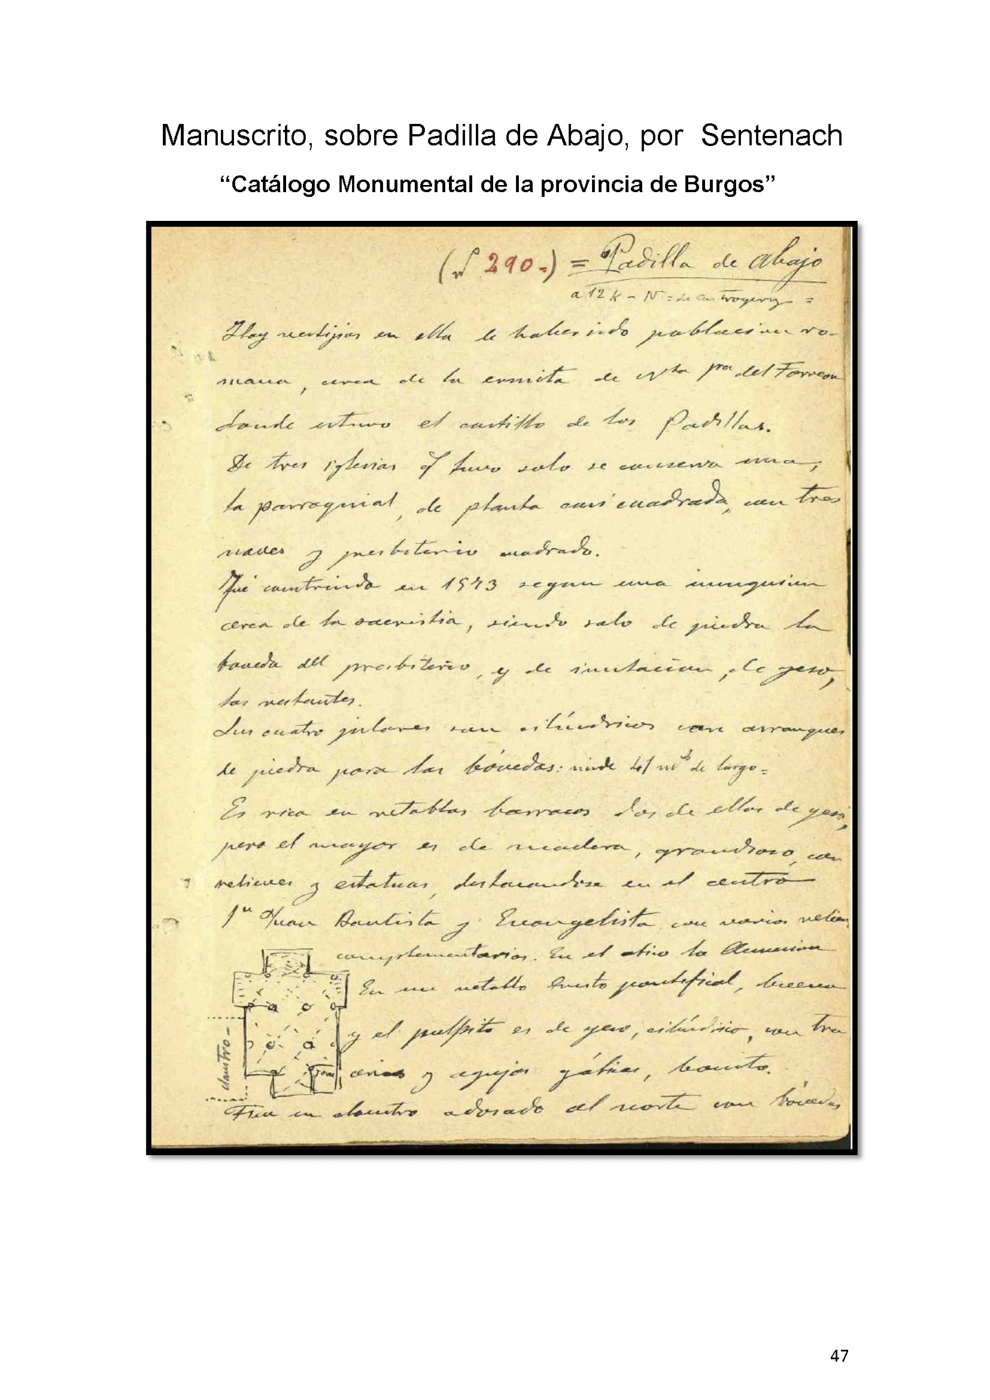 Manuscrito, sobre Padilla de Abajo, por Sentenach
“Catálogo Monumental de la provincia de Burgos”
(nº 290.) = Padilla de Abajo
a 12 K - N = de Castrogeriz =
Hay vestijios en ella de haber sido poblacion ro-
mana, cerca de la ermita de Ntra Sra del Torreon
donde estuvo el castillo de los Padillas.
De tres iglesias q tuvo solo se conserva una,
la parroquial, de planta casi cuadrada, con tres
naves y presbiterio cuadrado.
Fué construida en 1573 segun una inscripcion
cerca de la sacristia, siendo solo de piedra la
boveda del presbiterio, y de imitacion, de yeso,
las restantes.
Los cuatro pilares son cilíndricos con arranques
de piedra para las bóvedas: mide 41 mts de largo =
Es rica en retablos barrocos dos de ellos de yeso,
pero el mayor es de madera, grandioso, con
relieves y estatuas, destacandose en el centro
Sn Juan Bautista y Evangelista con varios reliev
complementarios. En el atico la Asuncion
En un retablo busto pontifical, bueno
y el pulpito es de yeso, cilíndrico, con tra
cerias y agujas góticas, bonito.
claustro -
Tiene un claustro adosado al norte con bóvedas
47